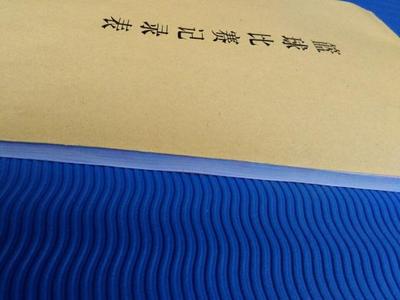 篮球比赛记录表